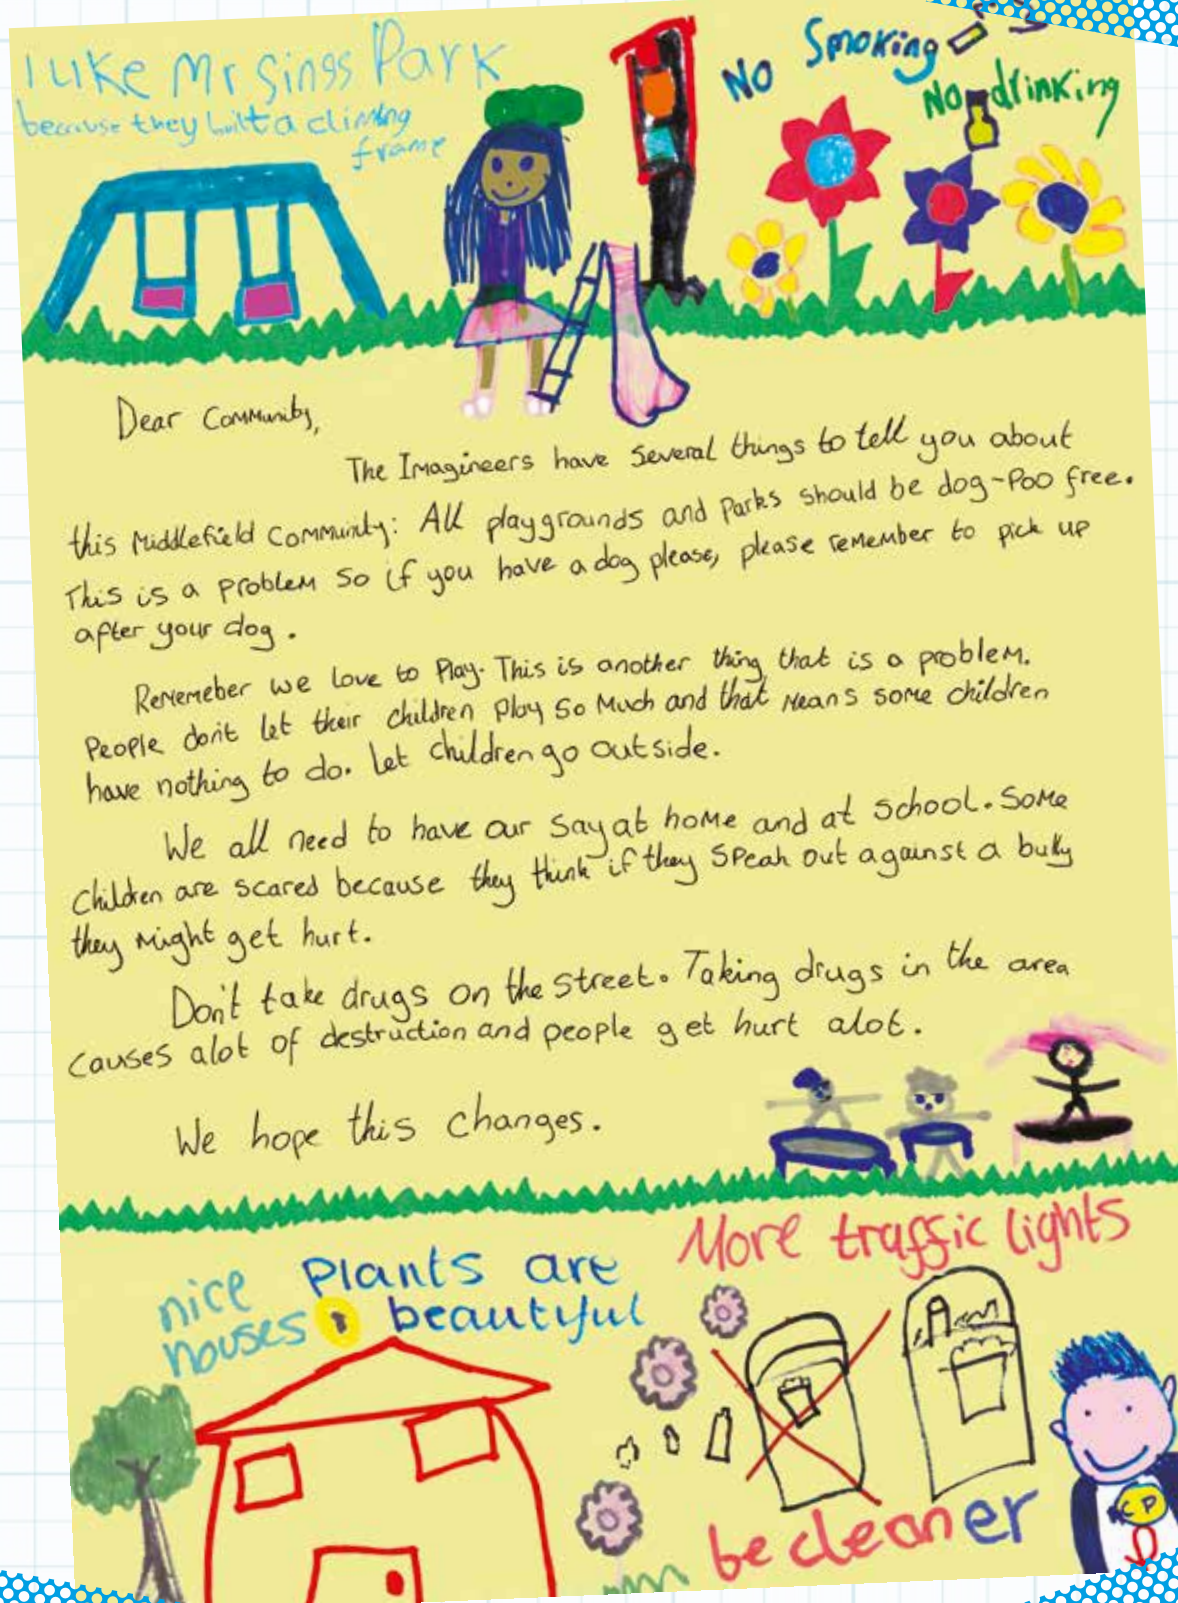 I like Mr Sings Park
because they built a climing
frame
No Smoking
No drinking
Dear Community,
The Imagineers have several things to tell you about
this Middlefield Community: All playgrounds and parks should be dog-poo free.
This is a problem so if you have a dog please, please remember to pick up
after your dog.
Rememeber we love to play. This is another thing that is a problem.
People don't let their children play so much and that means some children
have nothing to do. Let children go outside.
We all need to have our say at home and at school. Some
children are scared because they think if they speak out against a bully
they might get hurt.
Don't take drugs on the street. Taking drugs in the area
causes alot of destruction and people get hurt alot.
We hope this changes.
More traffic lights
nice
houses
Plants are
beautiful
be cleaner
CP